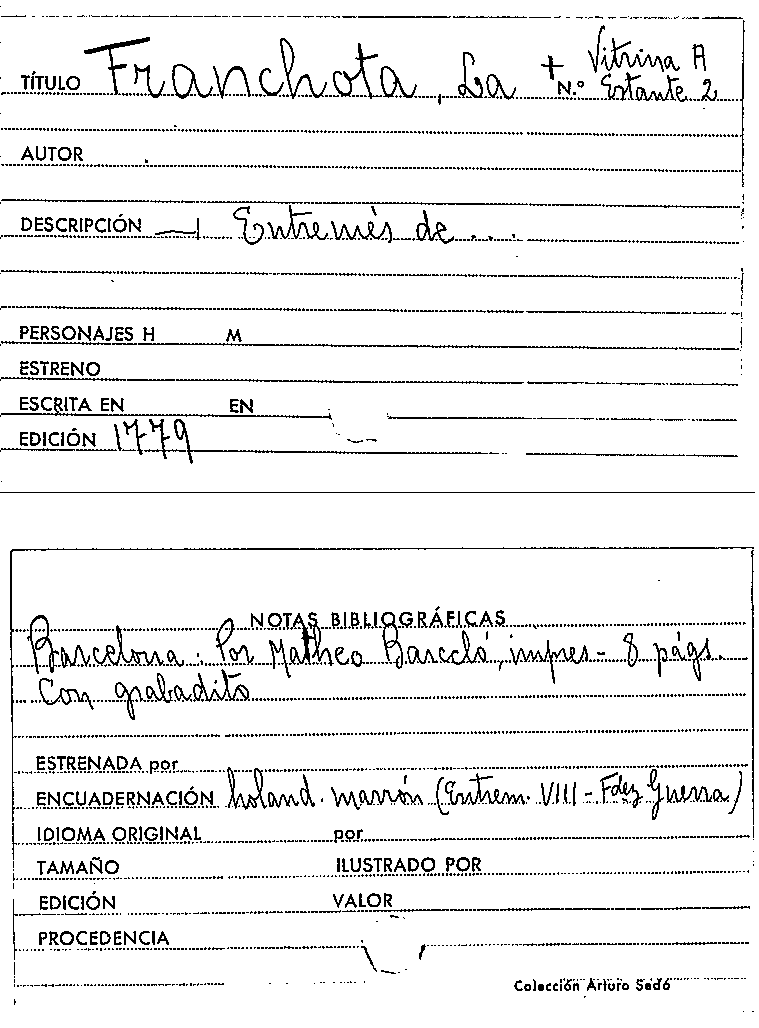 Vitrina A
TÍTULO Franchota, La + N.º Estante 2
AUTOR .
DESCRIPCIÓN Entremés de ...
PERSONAJES H M
ESTRENO
ESCRITA EN EN
EDICIÓN 1779
NOTAS BIBLIOGRÁFICAS
Barcelona: Por Matheo Barceló, impres - 8 págs.
Con grabadito
ESTRENADA por
ENCUADERNACIÓN holand. marrón (Entrem. VIII - Fdez Guerra)
IDIOMA ORIGINAL por
TAMAÑO ILUSTRADO POR
EDICIÓN VALOR
PROCEDENCIA
Colección Arturo Sedó